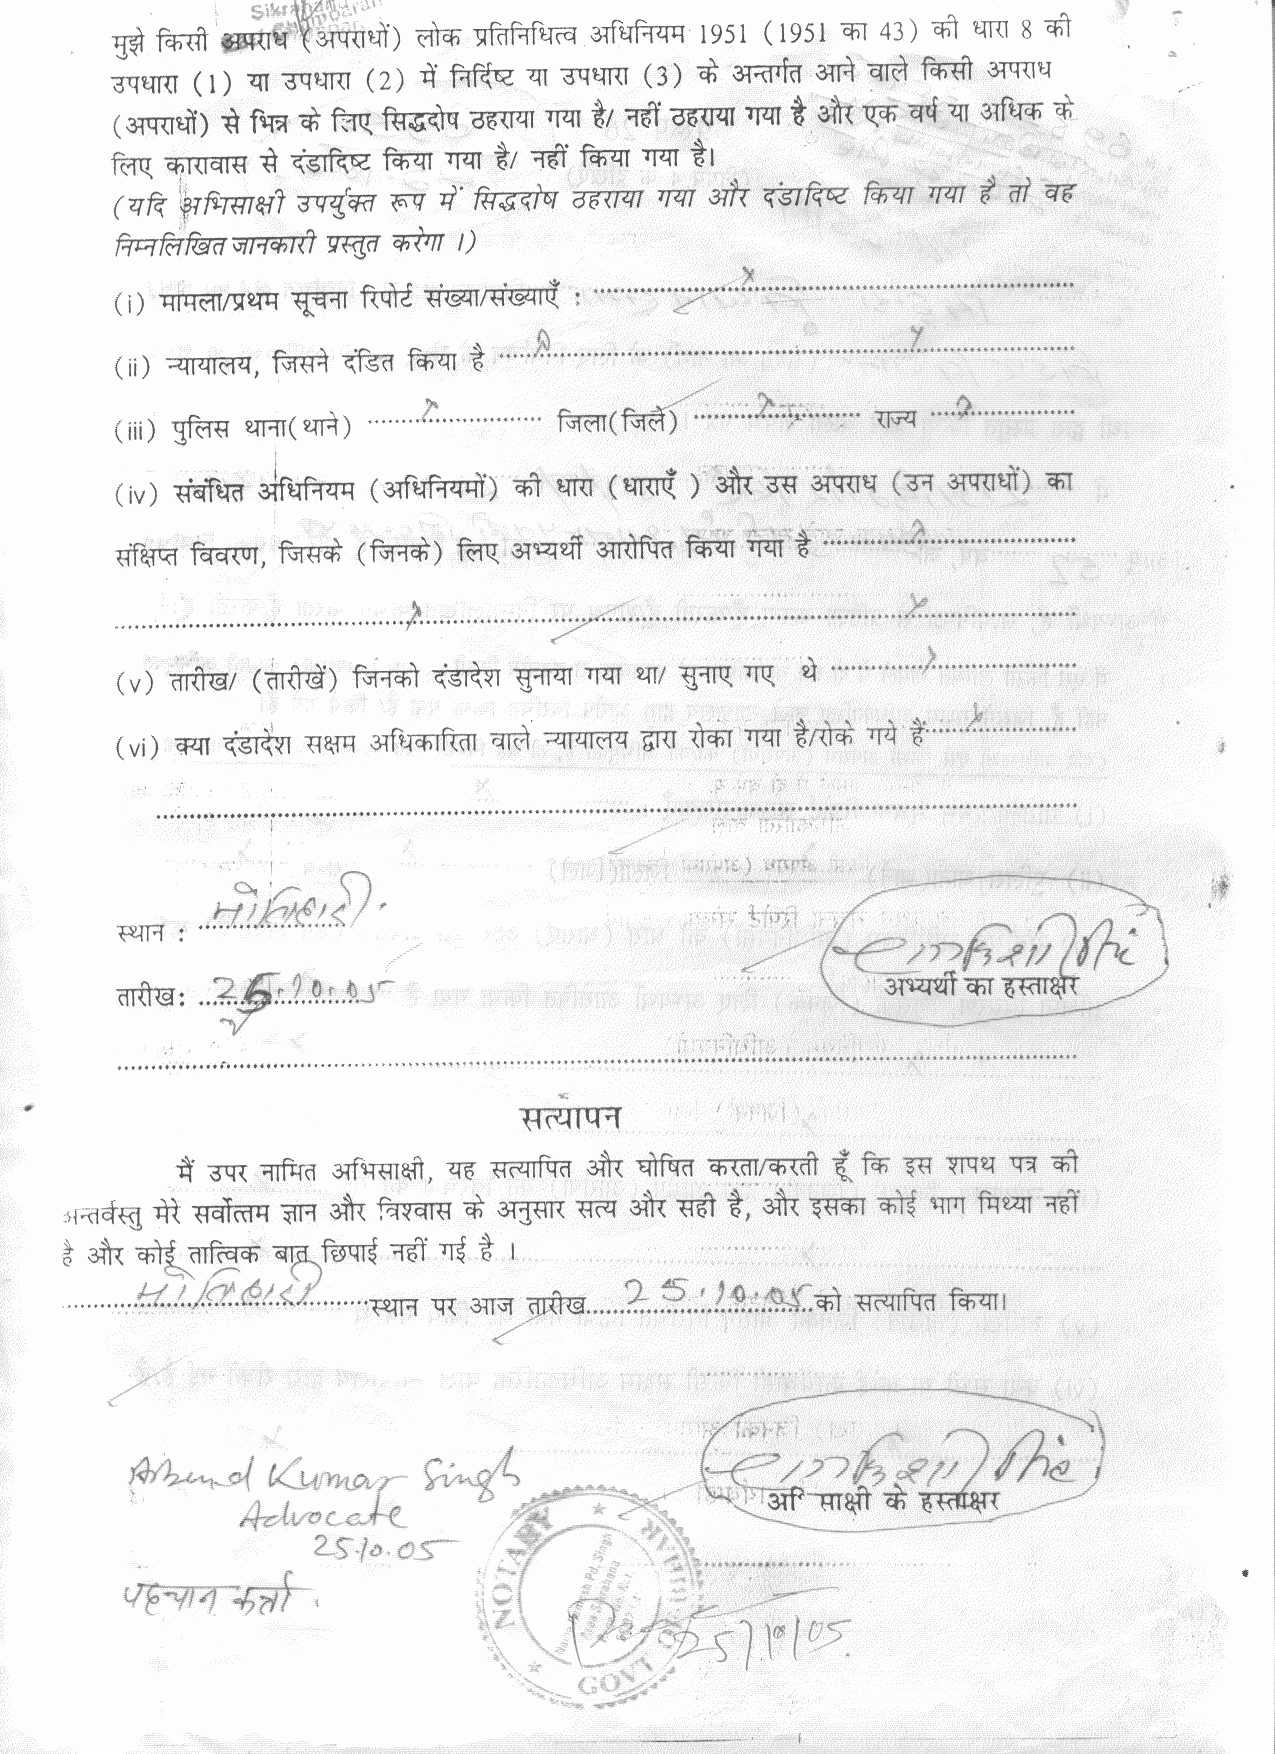 Sikrahana
Champaran
मुझे किसी अपराध (अपराधों) लोक प्रतिनिधित्व अधिनियम 1951 (1951 का 43) की धारा 8 की
उपधारा (1) या उपधारा (2) में निर्दिष्ट या उपधारा (3) के अन्तर्गत आने वाले किसी अपराध
(अपराधों) से भिन्न के लिए सिद्धदोष ठहराया गया है/ नहीं ठहराया गया है और एक वर्ष या अधिक के
लिए कारावास से दंडादिष्ट किया गया है/ नहीं किया गया है।
(यदि अभिसाक्षी उपर्युक्त रूप में सिद्धदोष ठहराया गया और दंडादिष्ट किया गया है तो वह
निम्नलिखित जानकारी प्रस्तुत करेगा ।)
(i) मामला/प्रथम सूचना रिपोर्ट संख्या/संख्याएँ : x
(ii) न्यायालय, जिसने दंडित किया है x x
(iii) पुलिस थाना(थाने) x जिला(जिले) x राज्य x
(iv) संबंधित अधिनियम (अधिनियमों) की धारा (धाराएँ ) और उस अपराध (उन अपराधों) का
संक्षिप्त विवरण, जिसके (जिनके) लिए अभ्यर्थी आरोपित किया गया है x
x x
(v) तारीख/ (तारीखें) जिनको दंडादेश सुनाया गया था/ सुनाए गए थे x
(vi) क्या दंडादेश सक्षम अधिकारिता वाले न्यायालय द्वारा रोका गया है/रोके गये हैं x
स्थान : मोतिहारी
तारीख: 25.10.05
अभ्यर्थी का हस्ताक्षर
सत्यापन
मैं उपर नामित अभिसाक्षी, यह सत्यापित और घोषित करता/करती हूँ कि इस शपथ पत्र की
अन्तर्वस्तु मेरे सर्वोत्तम ज्ञान और विश्वास के अनुसार सत्य और सही है, और इसका कोई भाग मिथ्या नहीं
है और कोई तात्विक बात छिपाई नहीं गई है ।
मोतिहारी स्थान पर आज तारीख 25.10.05 को सत्यापित किया।
Arbind Kumar Singh
Advocate
25.10.05
पहचान कर्त्ता
अभिसाक्षी के हस्ताक्षर
NOTARY
BIHAR
GOVT
25/10/05